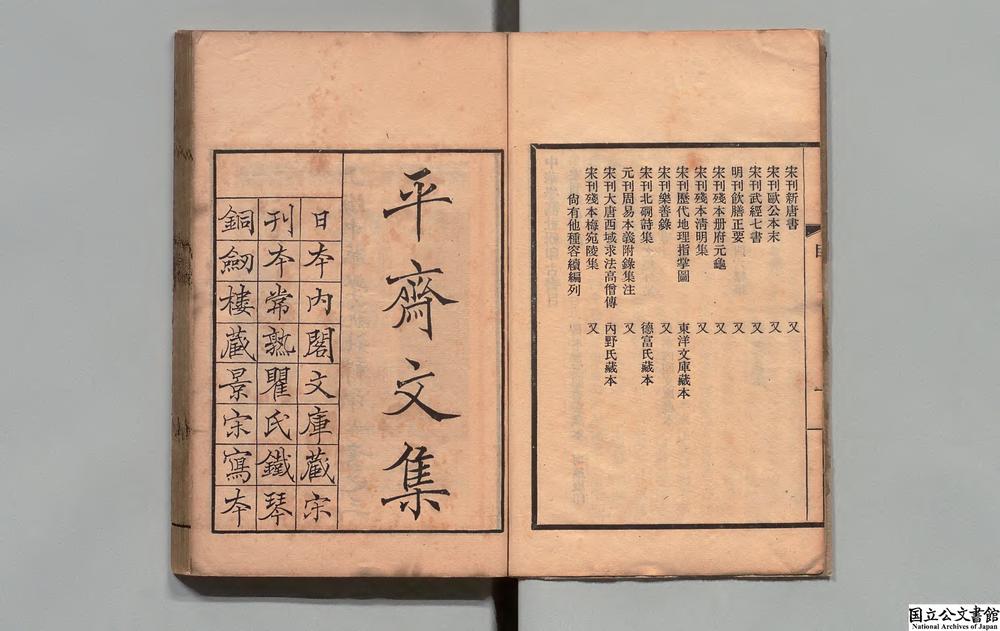 宋刊新唐書 又
宋刊歐公本末 又
宋刊武經七書 又
明刊飲膳正要 又
宋刊殘本册府元龜 又
宋刊殘本淸明集 又
宋刊歷代地理指掌圖 東洋文庫藏本
宋刊樂善錄 又
宋刊北磵詩集 德富氏藏本
元刊周易本義附錄集注 又
宋刊大唐西域求法高僧傳 內野氏藏本
宋刊殘本梅宛陵集 又
尙有他種容續編列
目
一
平齋文集
日本內閣文庫藏宋
刊本常熟瞿氏鐵琴
銅劒樓藏景宋寫本
国立公文書館
National Archives of Japan